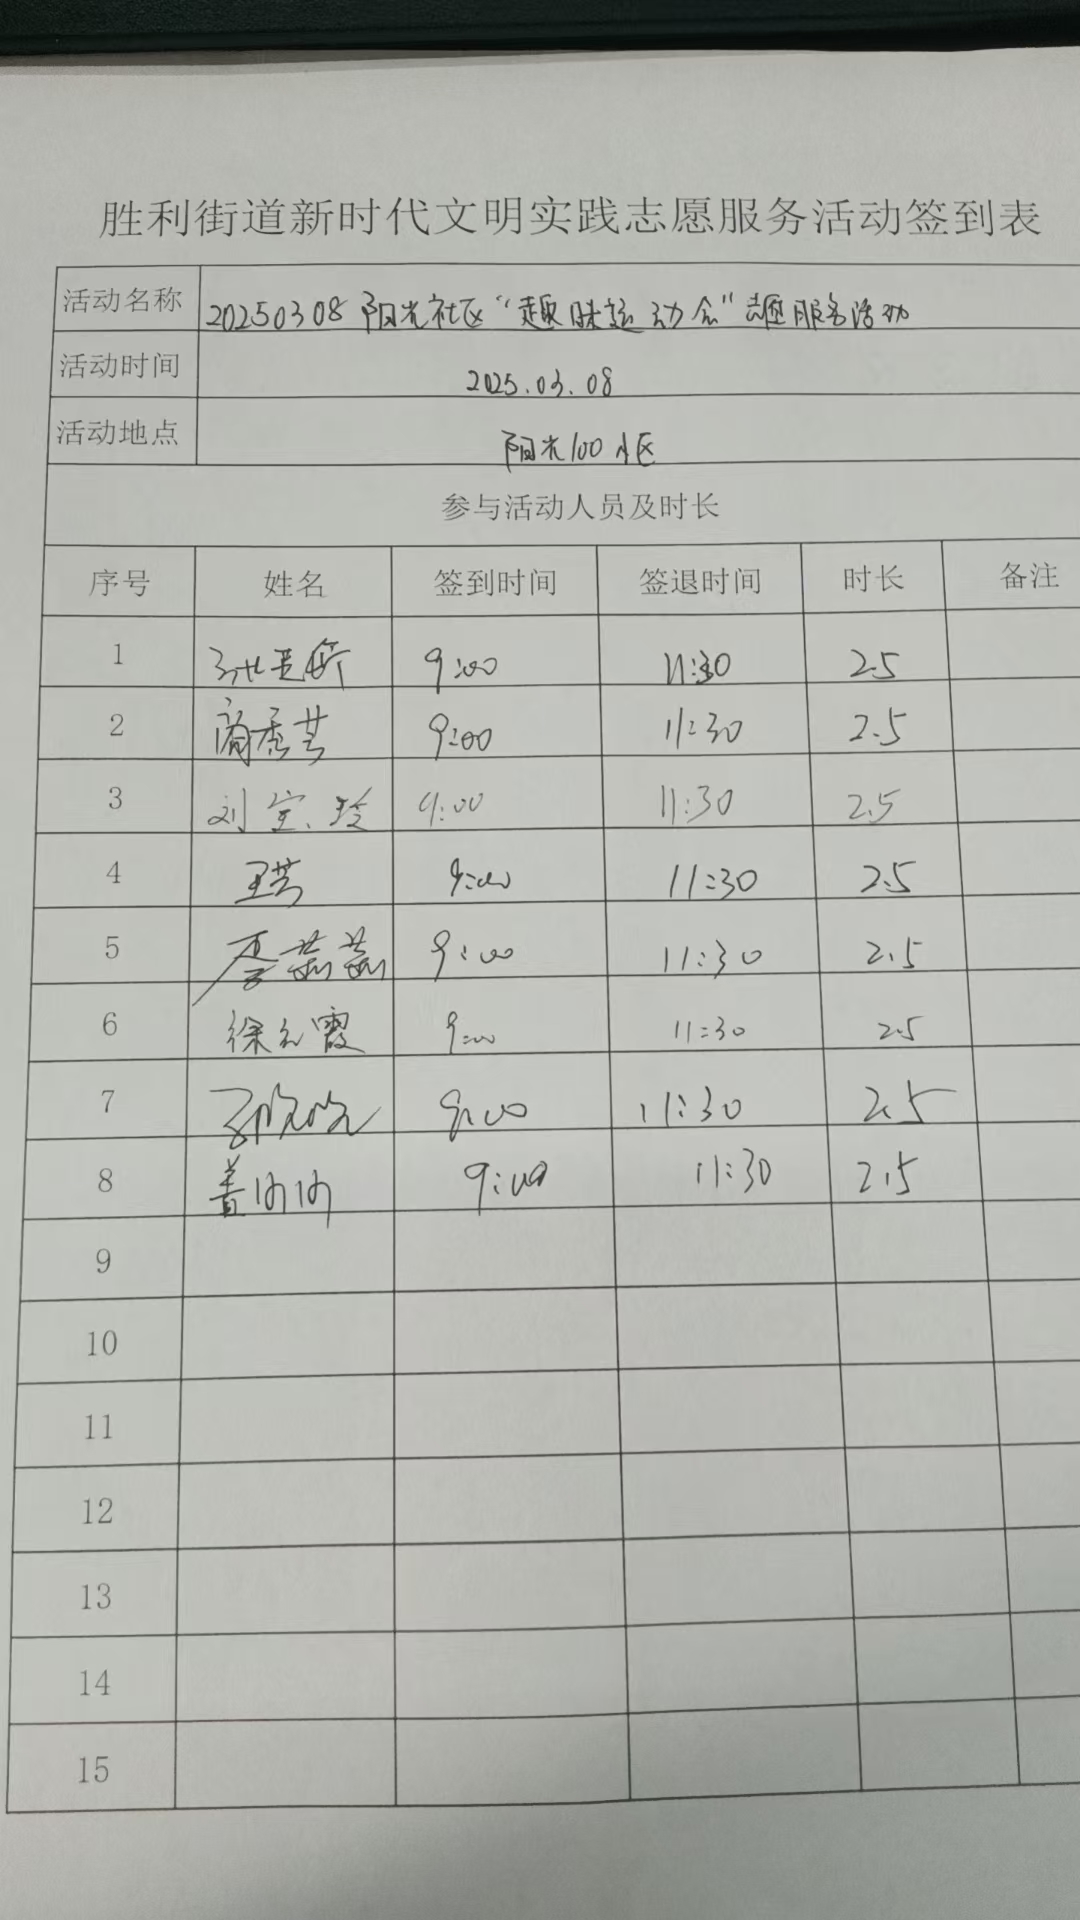 胜利街道新时代文明实践志愿服务活动签到表
活动名称 20250308阳光社区“趣味运动会”志愿服务活动
活动时间 2025.03.08
活动地点 阳光100小区
参与活动人员及时长
序号 姓名 签到时间 签退时间 时长 备注
1 9:00 11:30 2.5
2 9:00 11:30 2.5
3 刘宝玲 9:00 11:30 2.5
4 9:00 11:30 2.5
5 李茹茹 9:00 11:30 2.5
6 徐元霞 9:00 11:30 2.5
7 9:00 11:30 2.5
8 姜 9:00 11:30 2.5
9
10
11
12
13
14
15